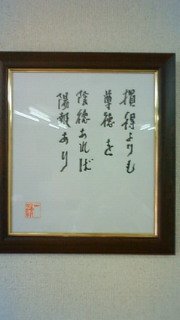 損得よりも
尊徳を
陰徳あれば
陽報あり